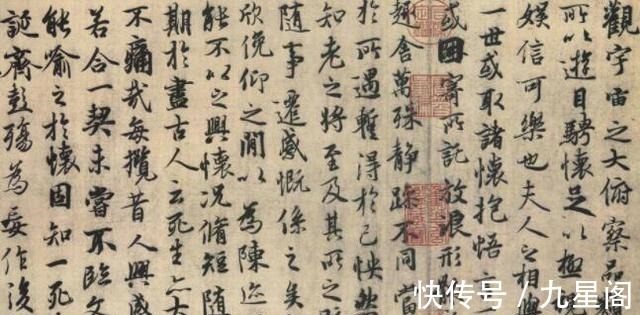 觀宇宙之大俯察品
所以遊目騁懷足以極
娛信可樂也夫人之相與
一世或取諸懷抱悟言
或因寄所託放浪形
趣舍萬殊靜躁不同當
於所遇蹔得於己怏然
知老之將至及其所之
隨事遷感慨係之矣
欣俛仰之閒以為陳迹
能不以之興懷況脩短隨
期於盡古人云死生亦大
不痛哉每攬昔人興感
若合一契未嘗不臨文
能喻之於懷固知一死
誕齊彭殤為妄作後
快传号／九星阁